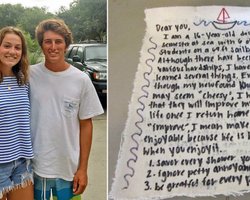 Dear you,
I am a 16-year-old
semester at sea with
students on a
Although there have been
various hardships, I have
learned several things,
through my newfound
may seem "cheesy",
that they will improve
life once I return home
"improve," I mean make
enjoyable because life
when you enjoy it.
1. Savor every shower
2. Ignore petty annoyances
3. be grateful for every